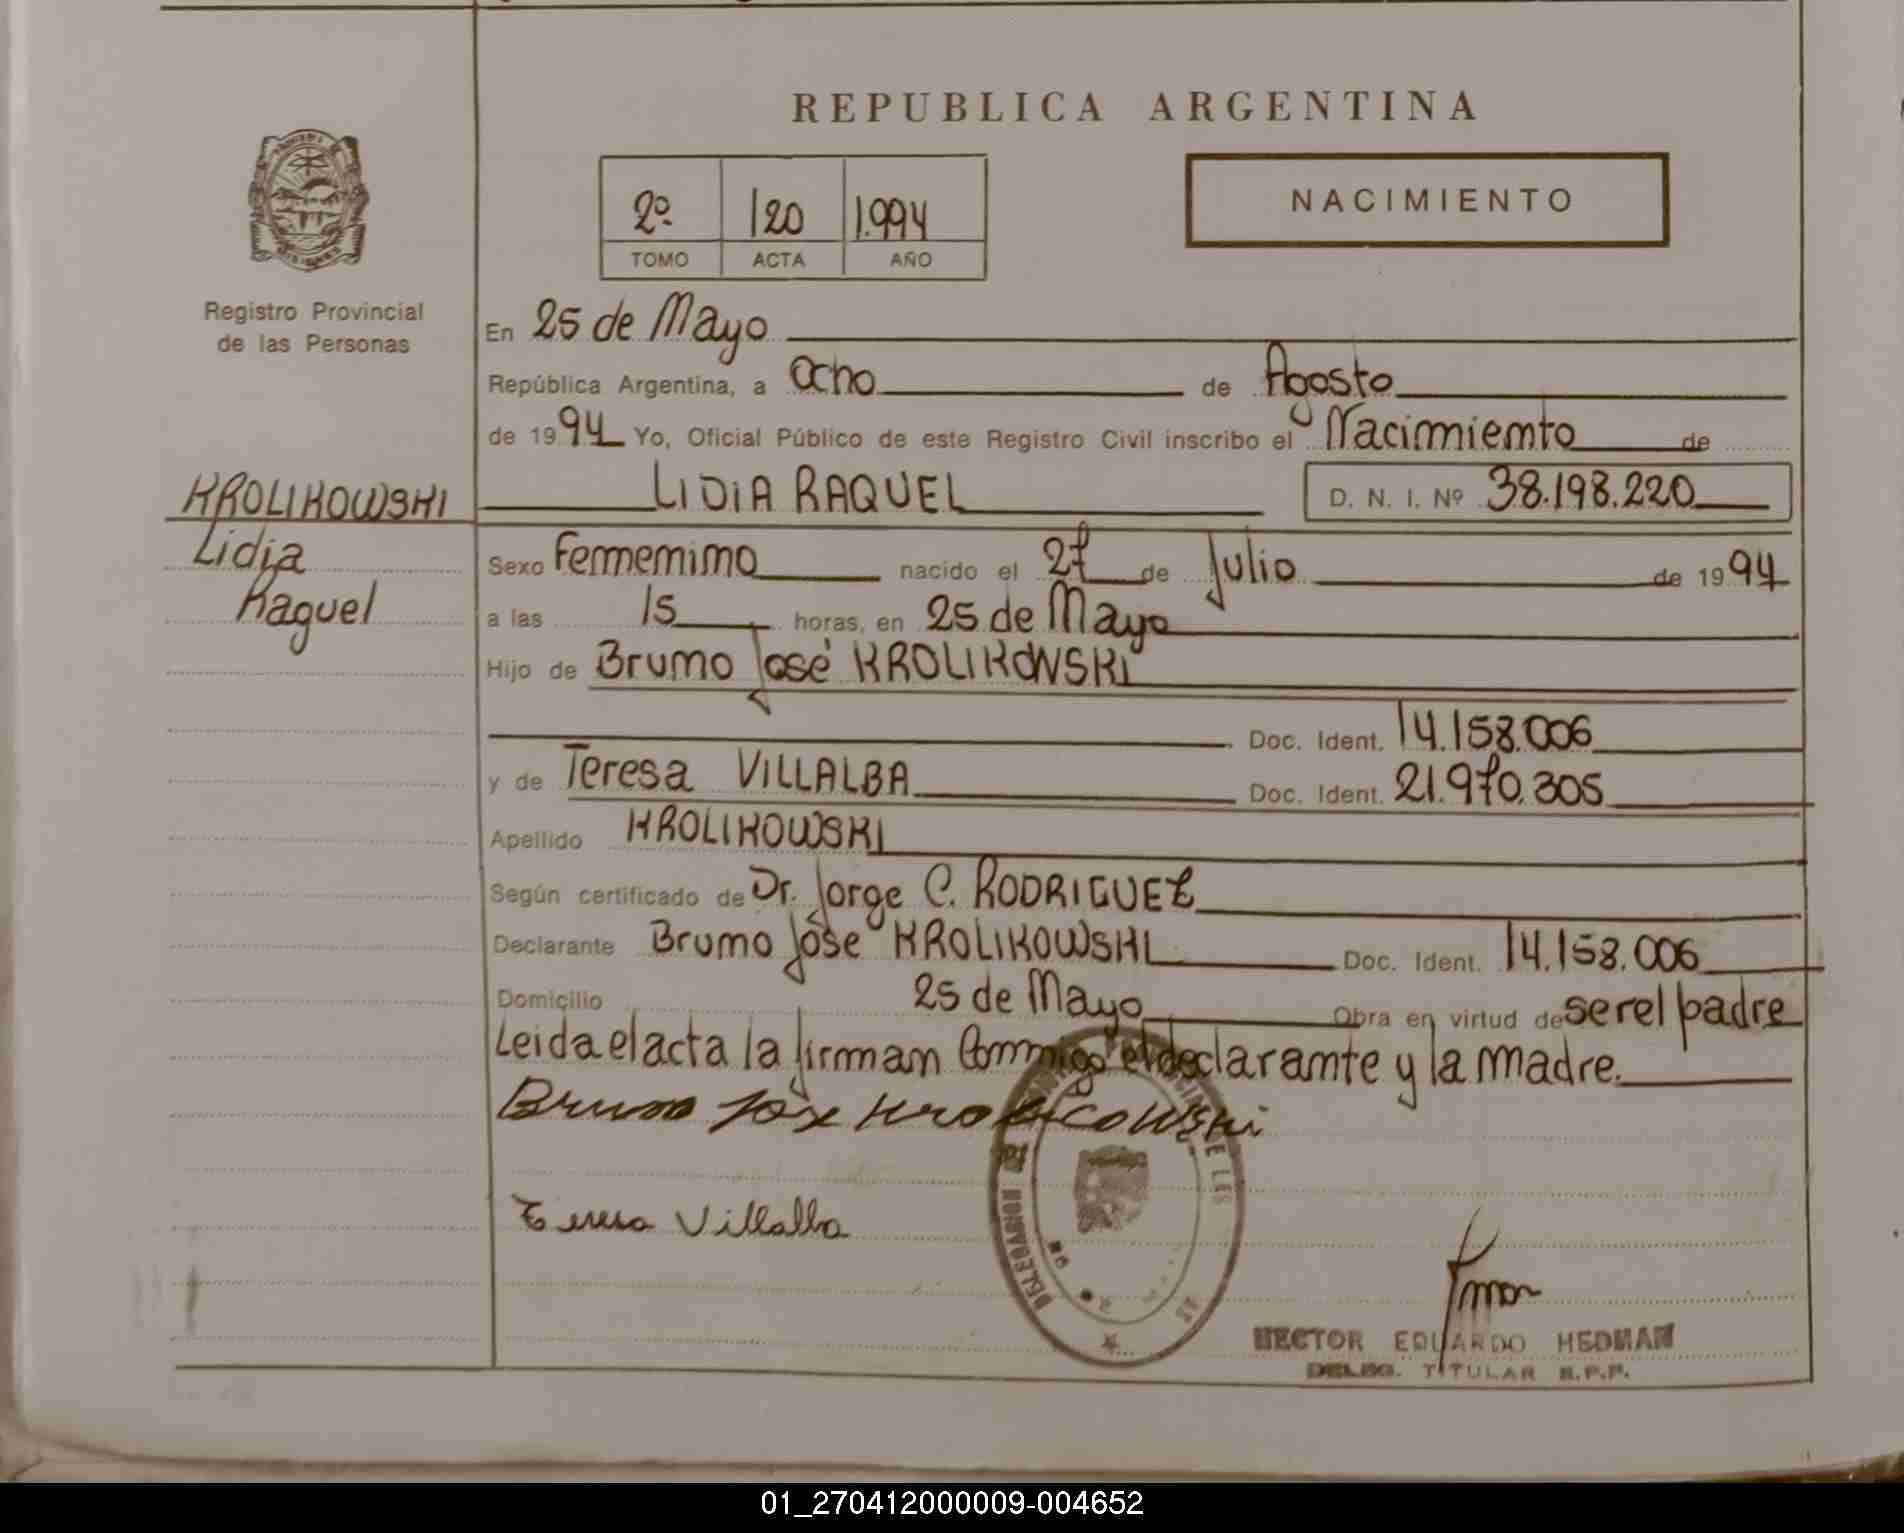 REPUBLICA ARGENTINA
2º 120 1.994
TOMO ACTA AÑO
NACIMIENTO
Registro Provincial
de las Personas
En 25 de Mayo
República Argentina, a ocho de Agosto
de 1994 Yo, Oficial Público de este Registro Civil inscribo el Nacimiento de
KROLIKOWSKI
Lidia
Raquel
LIDIA RAQUEL D. N. I. Nº 38.198.220
Sexo Femenino nacido el 27 de Julio de 1994
a las 15 horas, en 25 de Mayo
Hijo de Bruno José KROLIKOWSKI
Doc. Ident. 14.158.006
y de Teresa VILLALBA Doc. Ident. 21.970.305
Apellido KROLIKOWSKI
Según certificado de Dr. Jorge C. RODRIGUEZ
Declarante Bruno José KROLIKOWSKI Doc. Ident. 14.158.006
Domicilio 25 de Mayo Obra en virtud de ser el padre
Leida el acta la firman Conmigo el declarante y la madre.
Bruno Jose Krolicowski
Teresa Villalba
HECTOR EDUARDO HEDMAN
DELEG. TITULAR R.P.P.
01_270412000009-004652